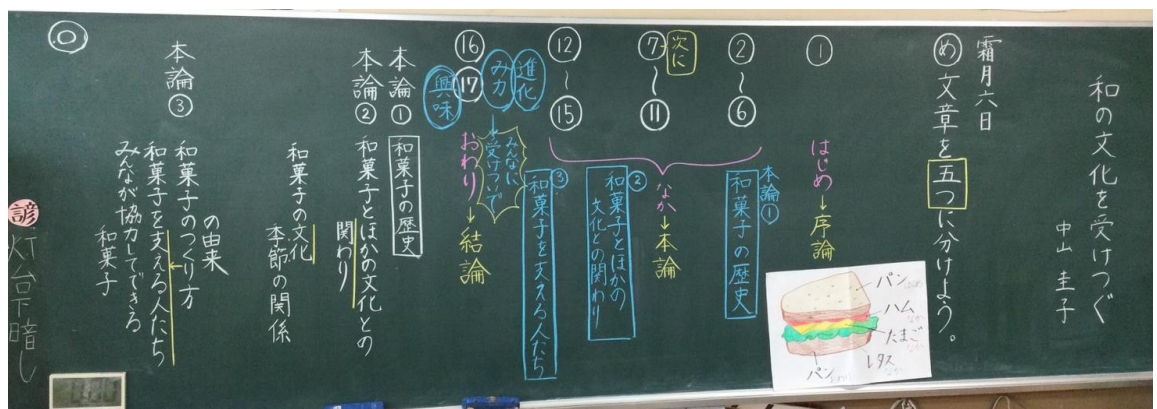 和の文化を受けつぐ
中山 圭子
霜月六日
め 文章を五つに分けよう。
① はじめ→序論
パン
ハム なか
たまご なか
レタス なか
パン
②～⑥
本論① 和菓子の歴史
次に
⑦～⑪
なか→本論
② 和菓子とほかの
文化との関わり
⑫～⑮
③ 和菓子を支える人たち
進化
み力
みんなに
受けついで
⑯ ⑰ おわり→結論
興味
本論① 和菓子の歴史
本論② 和菓子とほかの文化との
関わり
和菓子の文化
季節の関係
本論③
の由来
和菓子のつくり方
和菓子を支える人たち
みんなが協力してできる
和菓子
諺 灯台下暗し